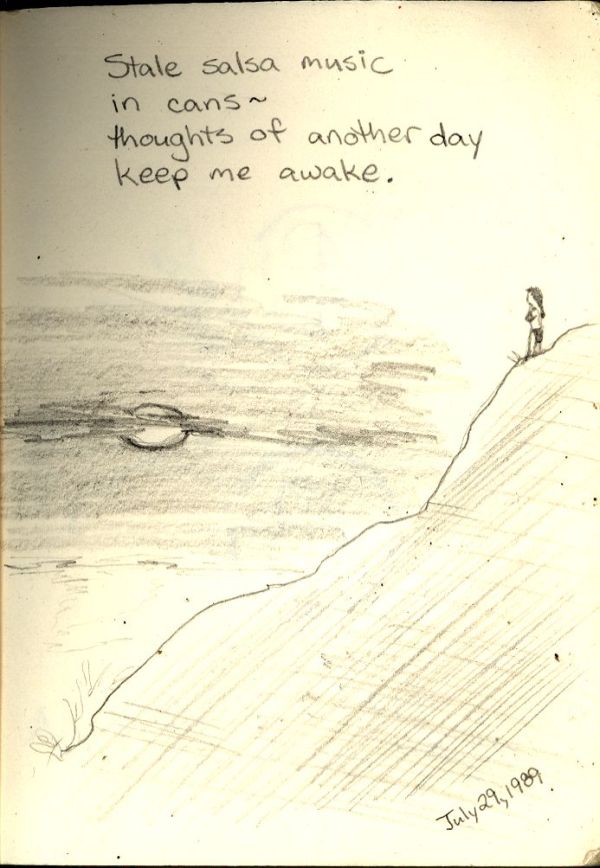 Stale salsa music
in cans~
thoughts of another day
keep me awake.
July 29, 1989